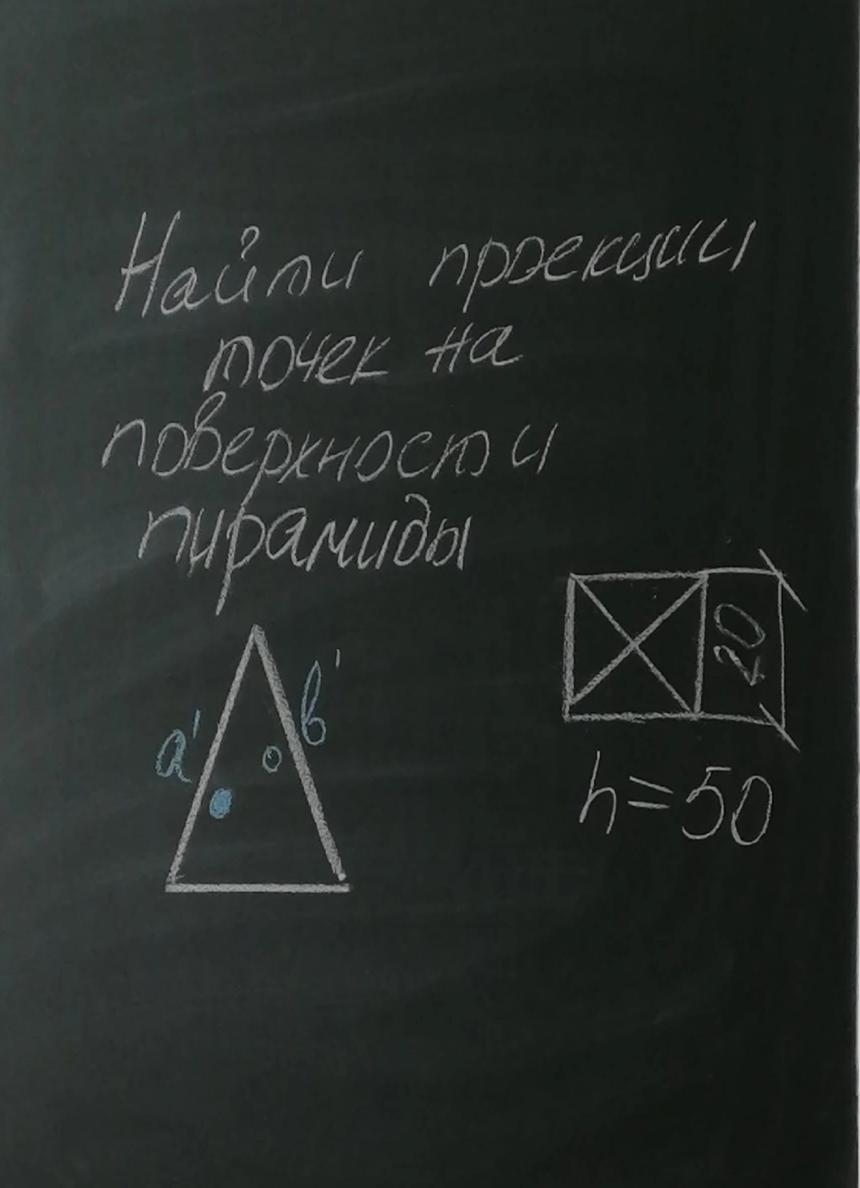 Найти проекции
точек на
поверхности
пирамиды
a'
b'
20
h=50